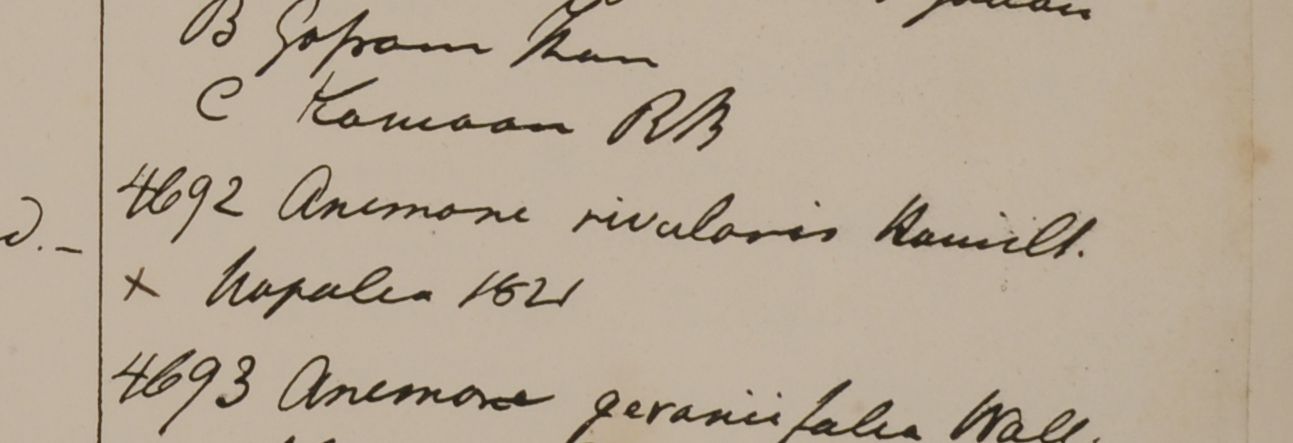 B Gosram Than
C Kamaon RB
4692 Anemone rivularis Hamilt.
d. -
x Napalia 1821
4693 Anemone geraniifolia Wall.